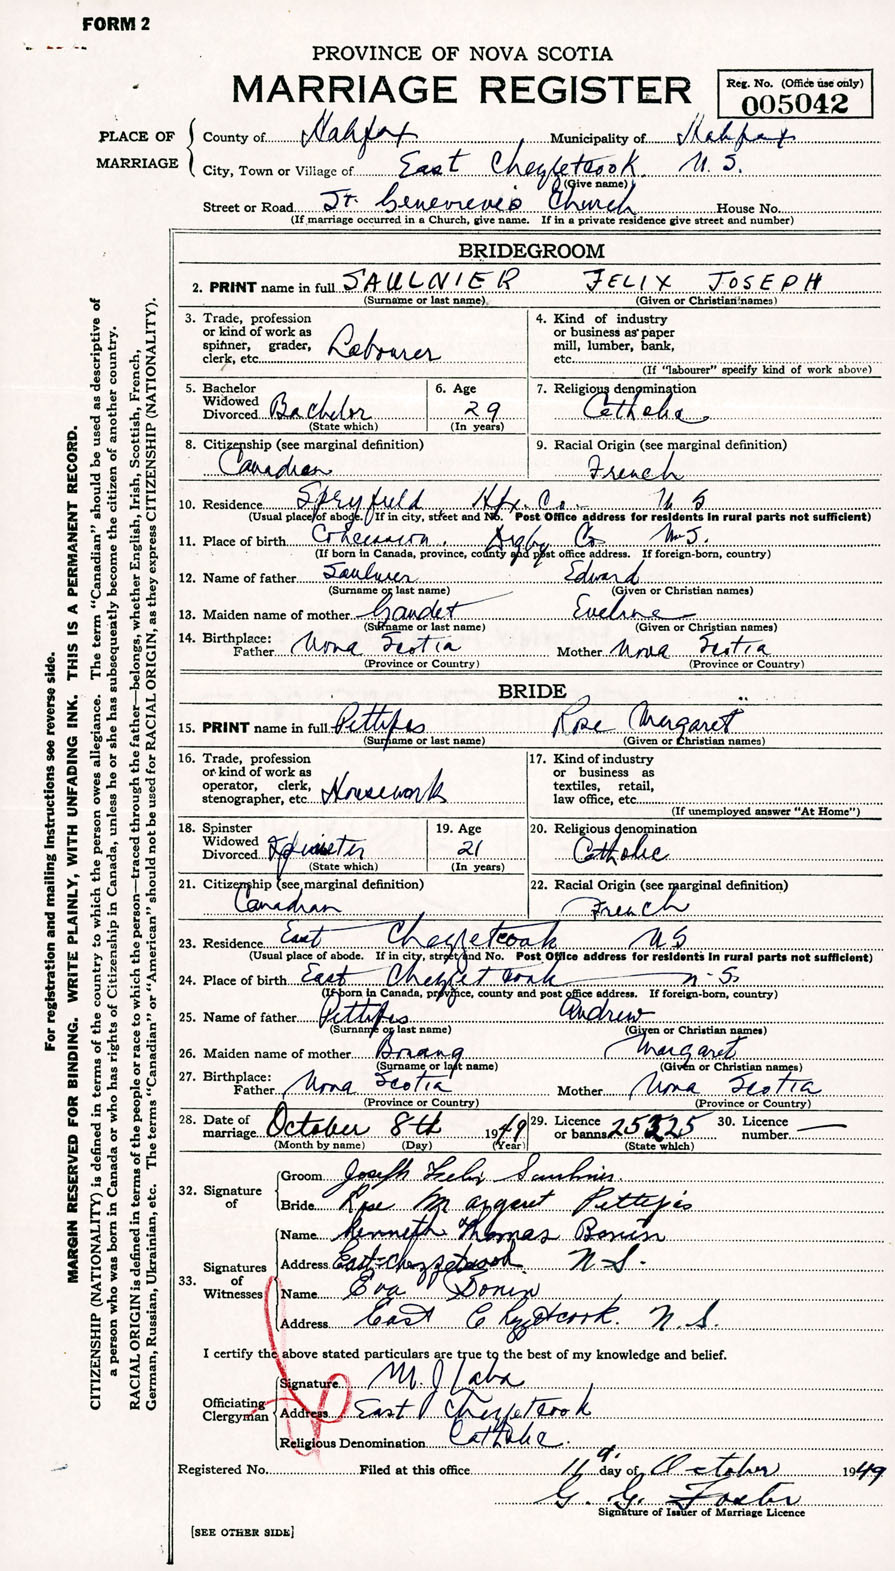 FORM 2
PROVINCE OF NOVA SCOTIA
MARRIAGE REGISTER
Reg. No. (Office use only)
005042
PLACE OF MARRIAGE
County of Halifax Municipality of Halifax
City, Town or Village of East Chezzetcook N.S.
(Give name)
Street or Road St. Genevieve's Church House No.
(If marriage occurred in a Church, give name. If in a private residence give street and number)
BRIDEGROOM
2. PRINT name in full SAULNIER FELIX JOSEPH
(Surname or last name) (Given or Christian names)
3. Trade, profession or kind of work as spinner, grader, clerk, etc. Labourer
4. Kind of industry or business as paper mill, lumber, bank, etc.
(If "labourer" specify kind of work above)
5. Bachelor Widowed Divorced Bachelor
(State which)
6. Age 29
(In years)
7. Religious denomination
Catholic
8. Citizenship (see marginal definition)
Canadian
9. Racial Origin (see marginal definition)
French
10. Residence Spryfield Hfx. Co. N S
(Usual place of abode. If in city, street and No. Post Office address for residents in rural parts not sufficient)
11. Place of birth Concession. Digby Co N.S.
(If born in Canada, province, county and post office address. If foreign-born, country)
12. Name of father Saulnier Edward
(Surname or last name) (Given or Christian names)
13. Maiden name of mother Gaudet Eveline
(Surname or last name) (Given or Christian names)
14. Birthplace:
Father Nova Scotia Mother Nova Scotia
(Province or Country) (Province or Country)
BRIDE
15. PRINT name in full Pettipas Rose Margaret
(Surname or last name) (Given or Christian names)
16. Trade, profession or kind of work as operator, clerk, stenographer, etc. Housework
17. Kind of industry or business as textiles, retail, law office, etc.
(If unemployed answer "At Home")
18. Spinster Widowed Divorced Spinster
(State which)
19. Age 21
(In years)
20. Religious denomination
Catholic
21. Citizenship (see marginal definition)
Canadian
22. Racial Origin (see marginal definition)
French
23. Residence East Chezzetcook N S
(Usual place of abode. If in city, street and No. Post Office address for residents in rural parts not sufficient)
24. Place of birth East Chezzetcook N-S.
(If born in Canada, province, county and post office address. If foreign-born, country)
25. Name of father Pettipas Andrew
(Surname or last name) (Given or Christian names)
26. Maiden name of mother Margaret
(Surname or last name) (Given or Christian names)
27. Birthplace:
Father Nova Scotia Mother Nova Scotia
(Province or Country) (Province or Country)
28. Date of marriage October 8th 1949
(Month by name) (Day) (Year)
29. Licence or banns 25325
(State which)
30. Licence number —
32. Signature of
Groom Joseph Felix Saulnier.
Bride Rose Margaret Pettipas
33. Signatures of Witnesses
Name Kenneth Thomas Bonin
Address East-Chezzetcook N-S.
Name Eva Bonin
Address East Chezzetcook. N.S.
I certify the above stated particulars are true to the best of my knowledge and belief.
Officiating Clergyman
Signature M. J Laba
Address East Chezzetcook
Religious Denomination Catholic.
Registered No. Filed at this office 11 day of October 1949
G. G. Foster
Signature of Issuer of Marriage Licence
[SEE OTHER SIDE]
For registration and mailing instructions see reverse side.
MARGIN RESERVED FOR BINDING. WRITE PLAINLY, WITH UNFADING INK. THIS IS A PERMANENT RECORD.
CITIZENSHIP (NATIONALITY) is defined in terms of the country to which the person owes allegiance. The term "Canadian" should be used as descriptive of
a person who was born in Canada or who has rights of Citizenship in Canada, unless he or she has subsequently become the citizen of another country.
RACIAL ORIGIN is defined in terms of the people or race to which the person—traced through the father—belongs, whether English, Irish, Scottish, French,
German, Russian, Ukrainian, etc. The terms "Canadian" or "American" should not be used for RACIAL ORIGIN, as they express CITIZENSHIP (NATIONALITY).